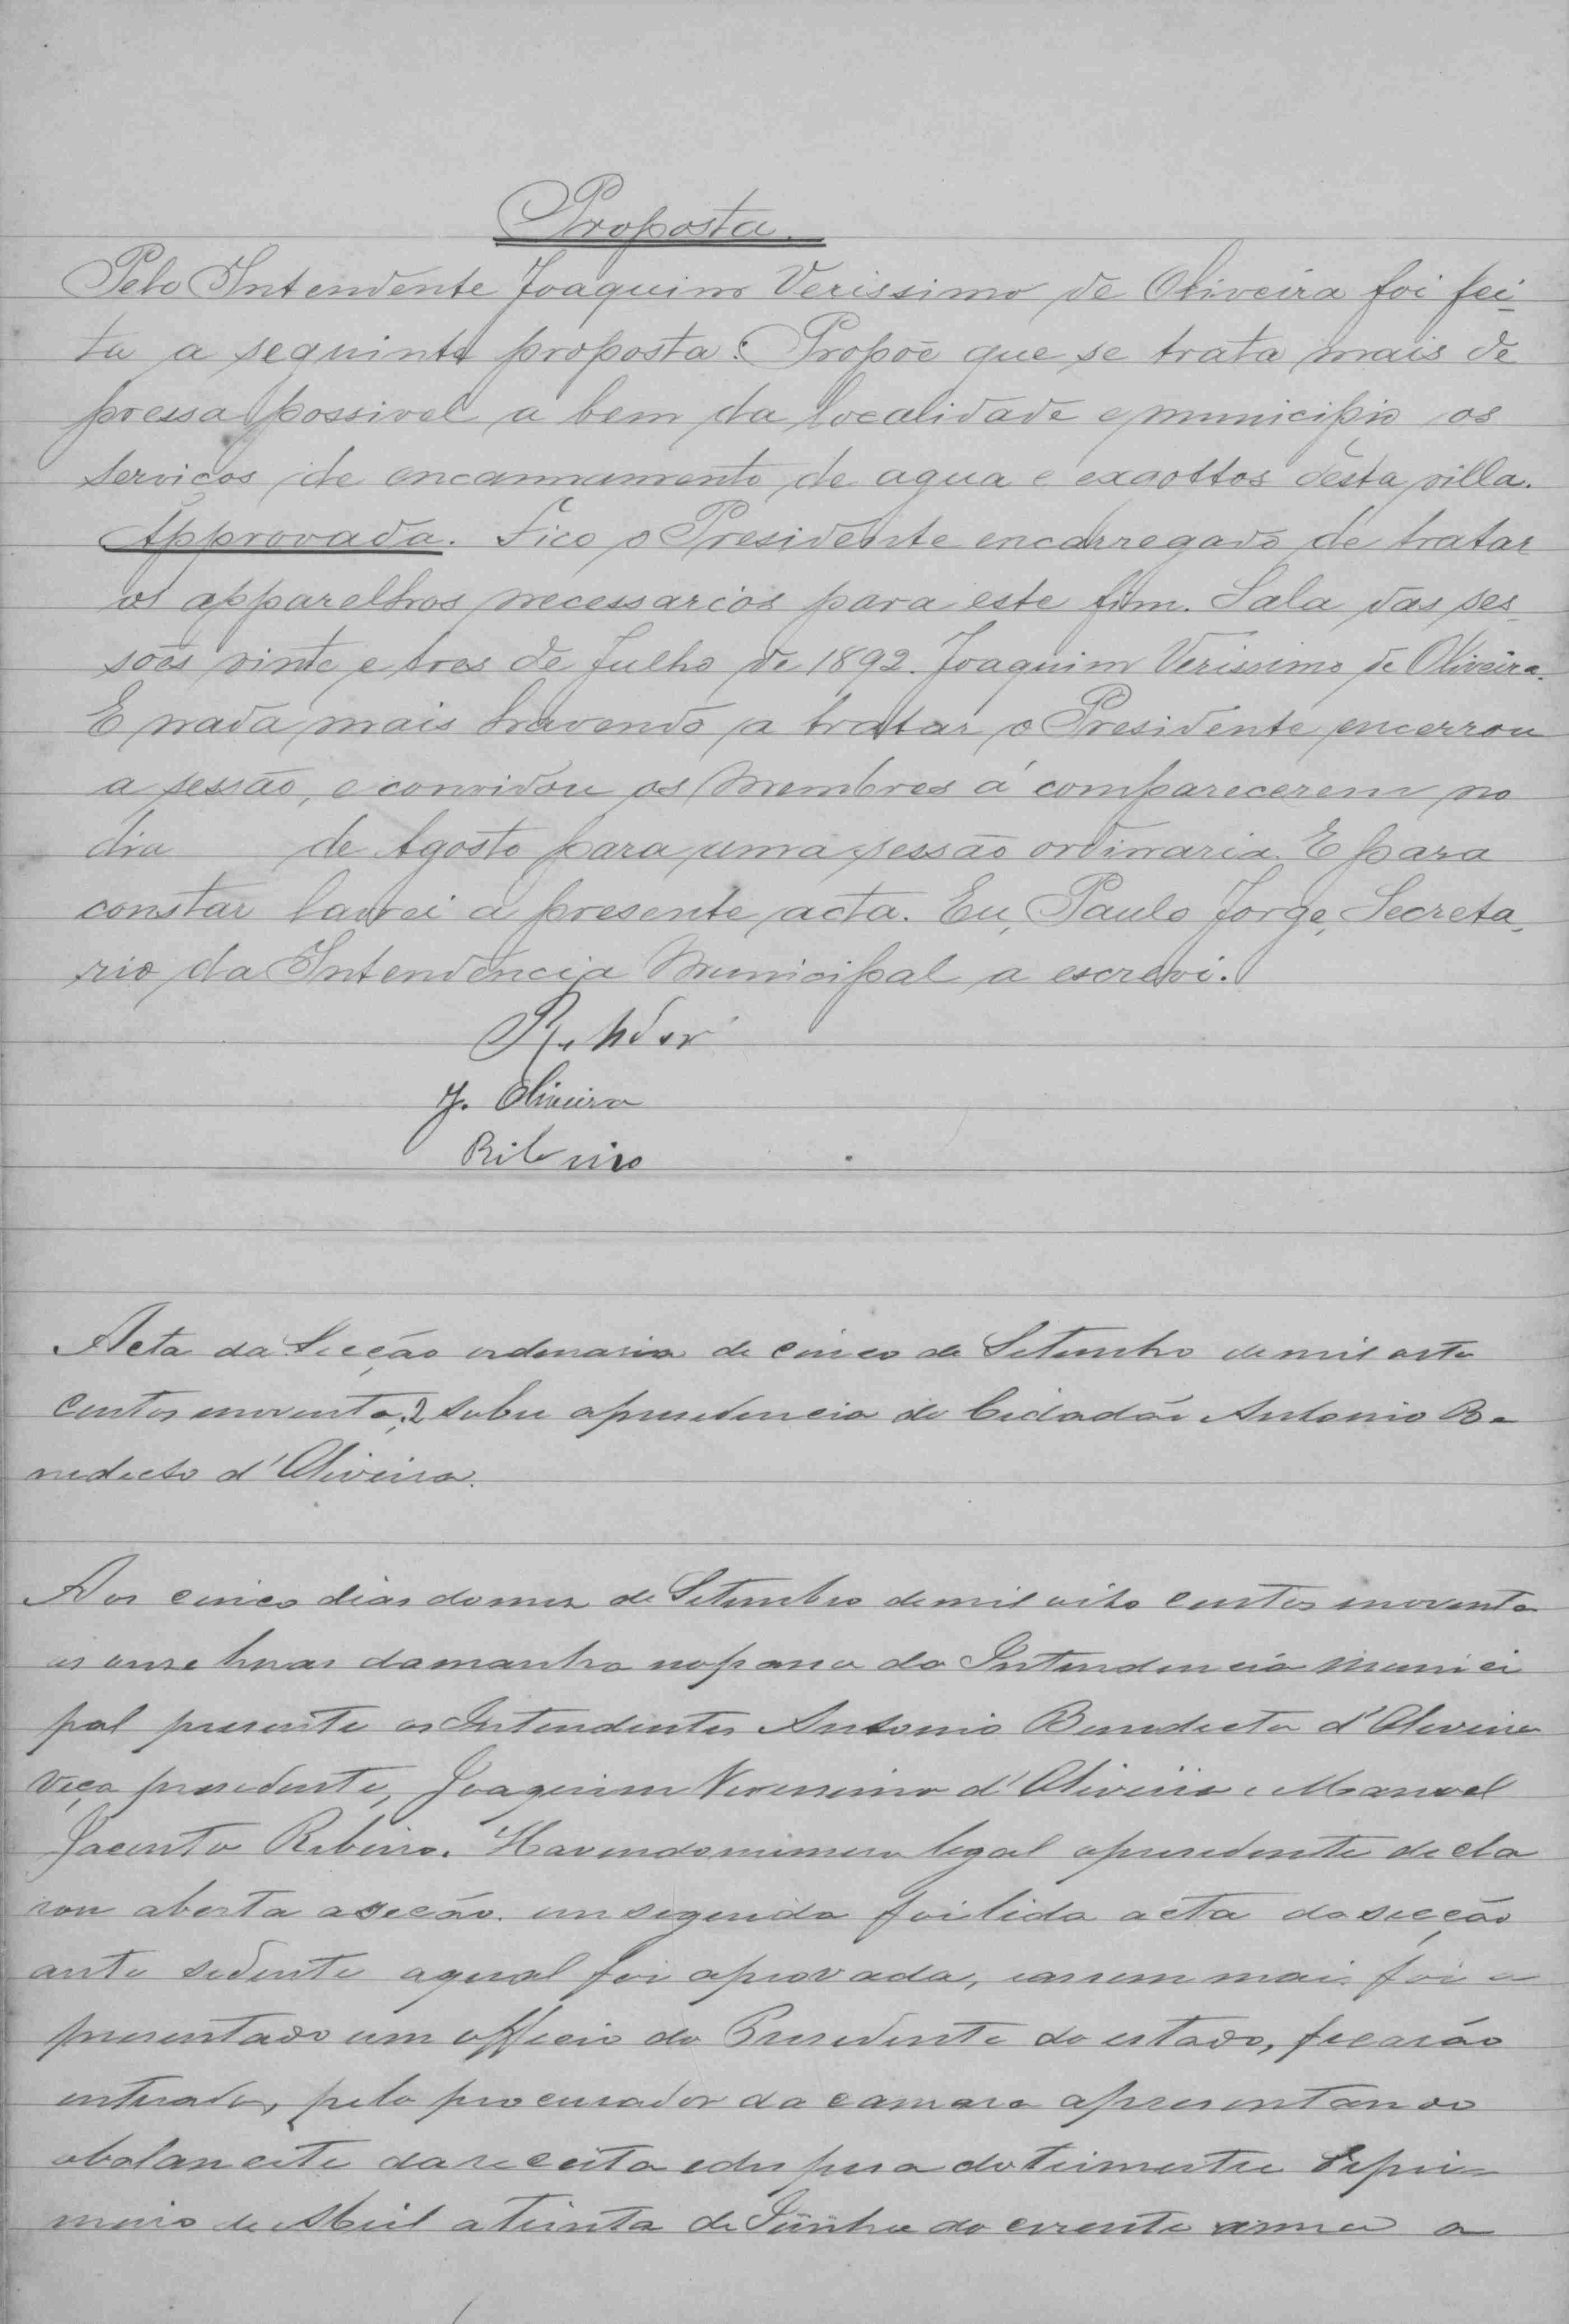 Proposta.
Pelo Intendente Joaquim Verissimo de Oliveira foi fei-
ta a seguinte proposta: Propoe que se trata mais de
pressa possivel a bem da localidade e municipio os
serviços de encannamento de agua e exgottos desta villa.
Approvada. Fico o Presidente encarregado de tratar
os apparelhos necessarios para este fim. Sala das ses-
sões vinte e tres de Julho de 1892. Joaquim Verissimo de Oliveira.
E nada mais havendo a tratar o Presidente encerrou
a sessão, e convidou os Membros á comparecerem no
dia de Agosto para uma sessão ordinaria. E para
constar lavrei a presente acta. Eu, Paulo Jorge, Secreta-
rio da Intendencia Municipal a escrevi.
J. Oliveira
Ribeiro
Acta da Secção ordenaria de cinco de Setembro de mil oito
centos enoventa, 2 sobre apresedencia do Cidadão Antonio Be
nedicto d'Oliveira.
Aos cinco dias do mez de Setembro de mil oito centos enoventa
as onze horas damanha no da Intendencia Munici
pal presente os Intendentes Antonio Benedicto d'Oliveira
Viça presedente, Joaquim Veressimo d'Oliveira e Manoel
Jacento Ribeiro. Havendo numero legal opresedente decla
rou aberta aseção. em seguida foi lida acta da secção
ante sedente aqual foi aprovada, mais foi a
presentado um officio do Presedente do estado, ficarão
enterados, pelo procurador da camara apresentando
obalancete da receita edespesa do trimestre de pri-
meiro de Abril a trinta de Junho do corrente anno a